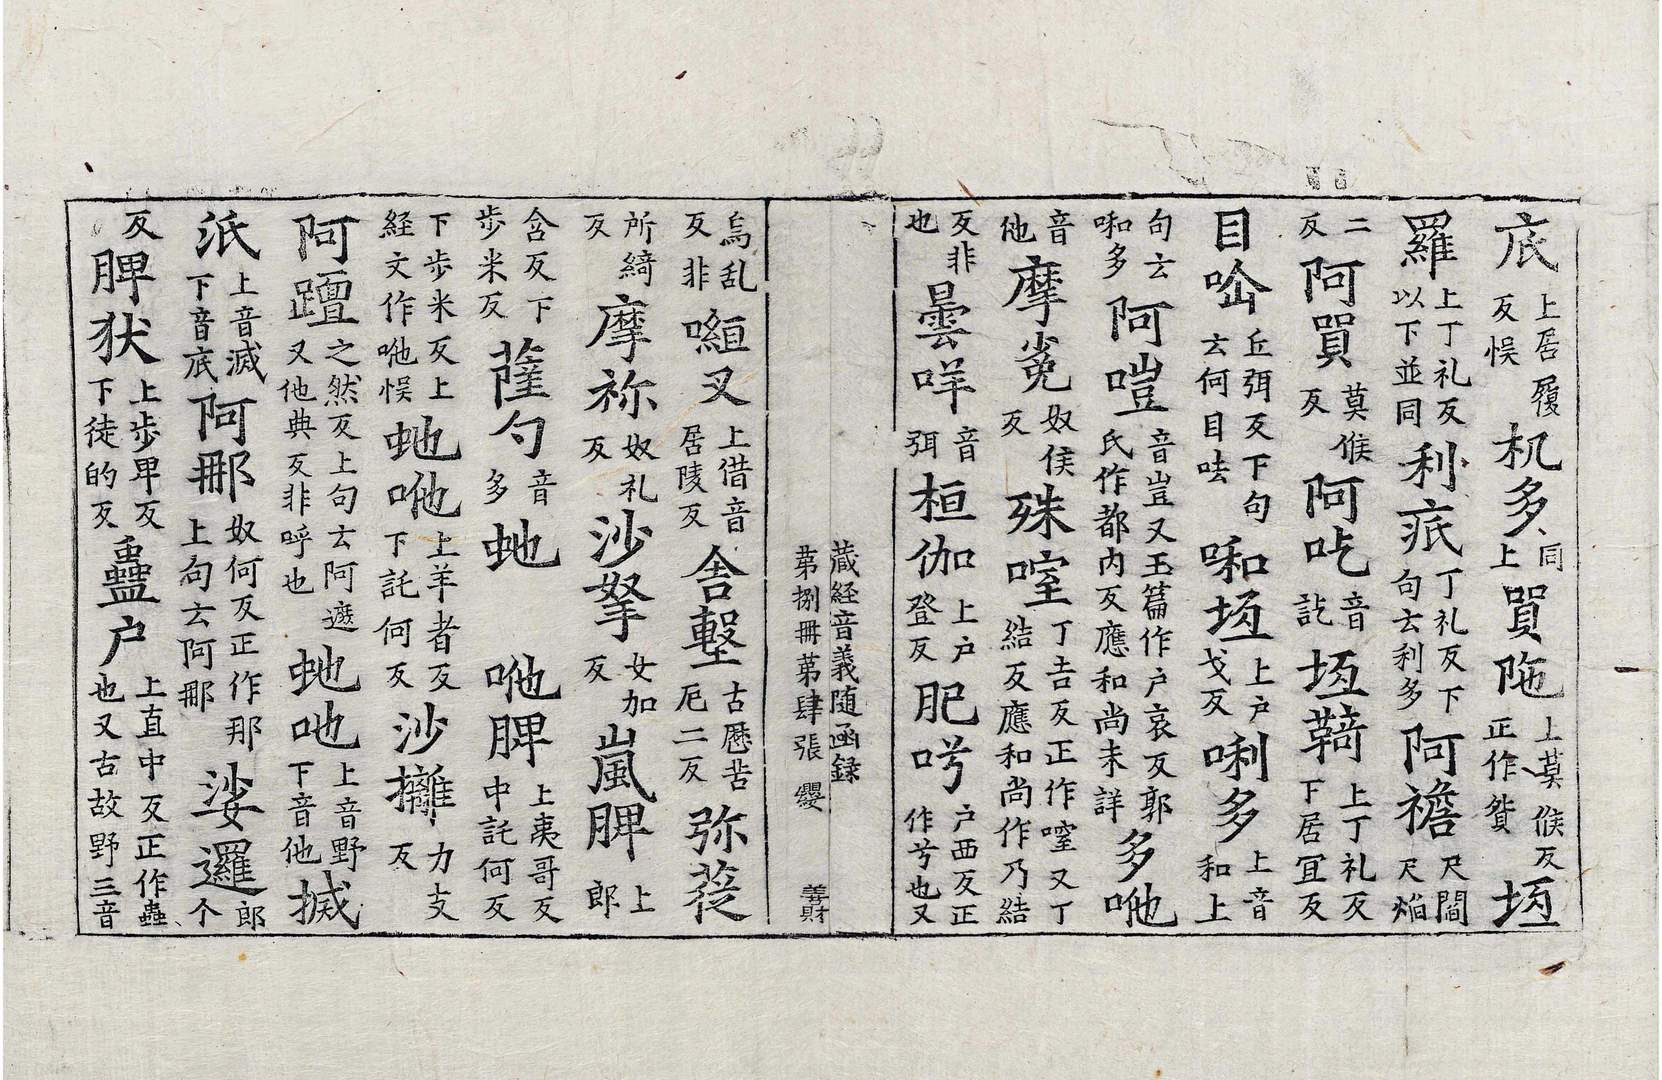 底上居履反悮机多同上買陁上莫候反正作貿㘴
羅上丁礼反以下並同利疧丁礼反下句云利多阿襜尺閻尺焔
二反阿買莫候反阿吃音訖㘴䩭上丁礼反下居宜反
目唫丘弭反下句云何目呿啝㘴上户戈反唎多上音和上
句云啝多阿嘊音豈又玉篇作户哀反郭氏作都内反應和尚未詳多吔
音他摩㝹奴侯反殊㗌丁吉反正作㗌又丁結反應和尚作乃結
反非也曇咩音弭桓伽上户登反肥呺户西反正作兮也又
藏經音義隨函録
第捌冊第肆張 纓
善財
烏乱反非㘋又上借音居陵反舎墼古歷苦厄二反弥蓰
所綺反摩祢奴礼反沙拏女加反嵐脾上郎
含反下步米反薩勺音多虵
吔脾上夷哥反中託何反
下步米反上経文作吔悮虵吔上羊者反下託何反沙攡力支反
阿䠠之然反上句云阿遮又他典反非呼也虵吔上音野下音他搣
泜上音滅下音底阿那奴何反正作那上句云阿那娑邏郎个
反脾狄上步卑反下徒的反蠱户上直中反正作蟲也又古故野三音